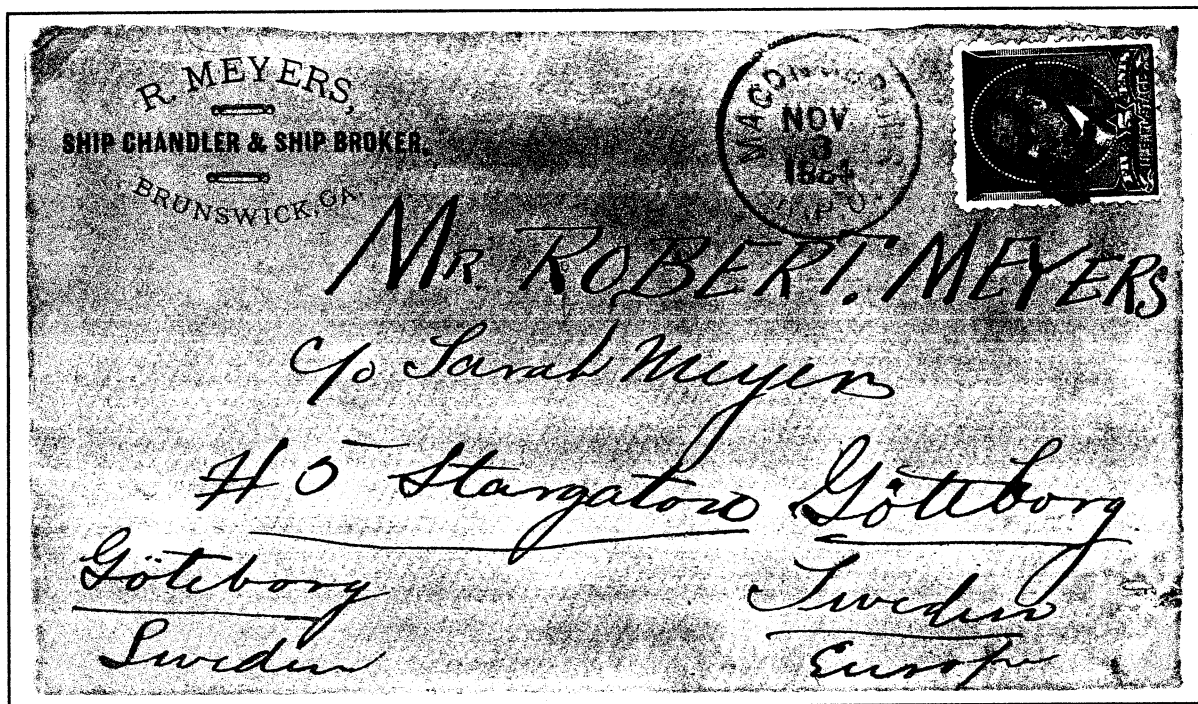 R. MEYERS,
SHIP CHANDLER & SHIP BROKER.
BRUNSWICK, GA.
MACON
NOV
3
1884
R.P.O.
MR. ROBERT. MEYERS
c/o Sarah Meyers
# 5 Stargaton Götteborg
Göteborg
Sweden
Sweden
Europe